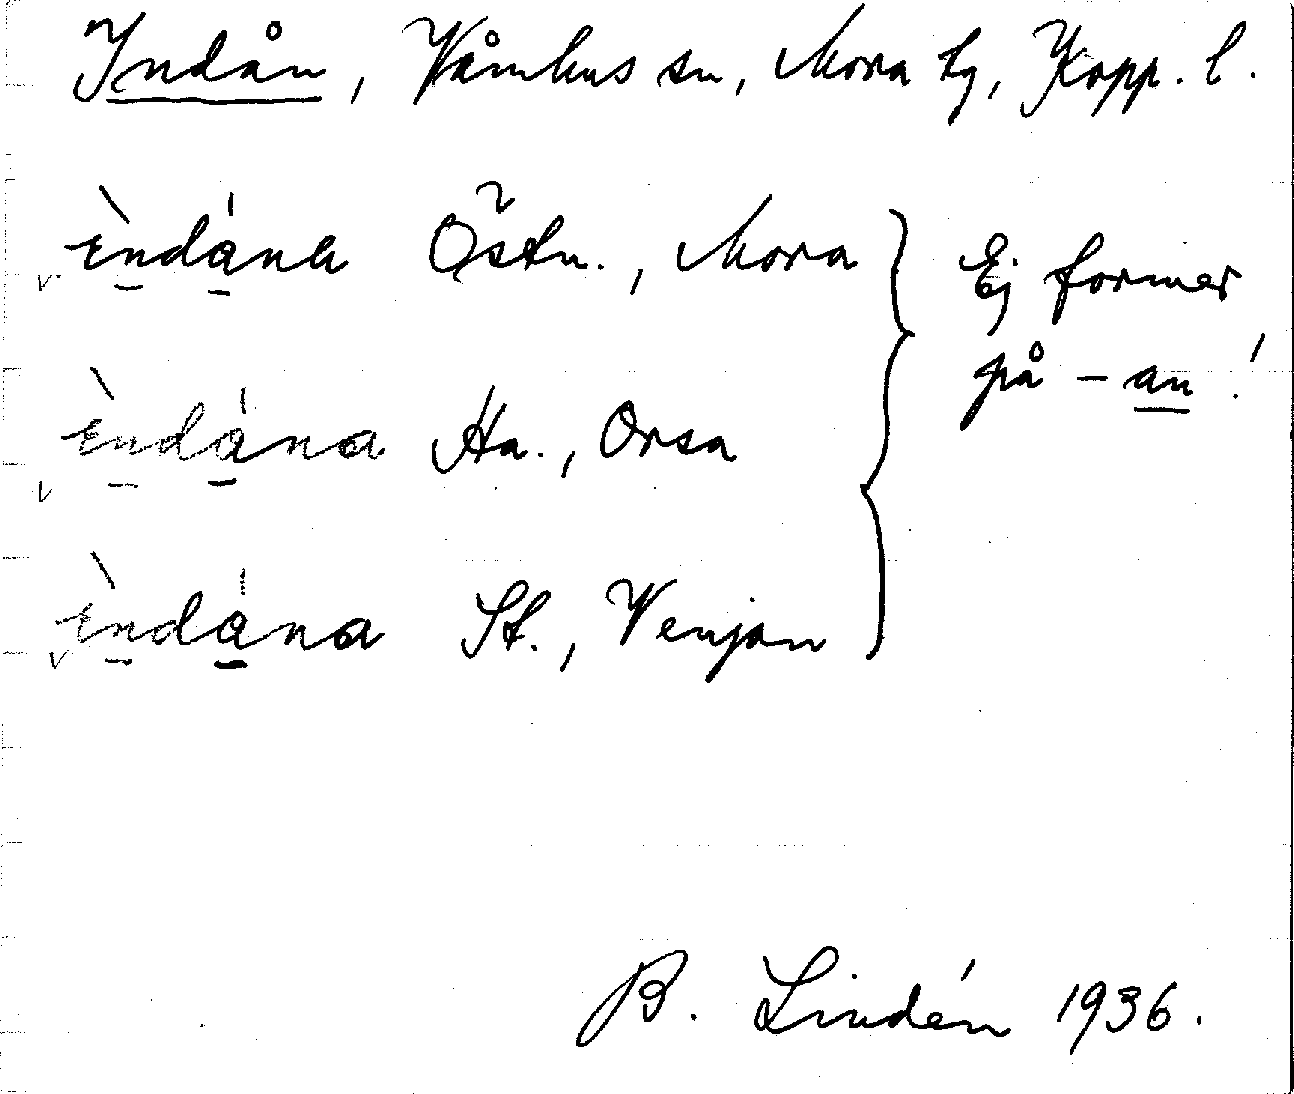 Indån, Våmhus sn, Mora tg, Kopp. l.
ìndána Östn., Mora
Ej former
på -an!
ìndána Ha., Orsa
ìndána St., Venjan
B. Lindén 1936.